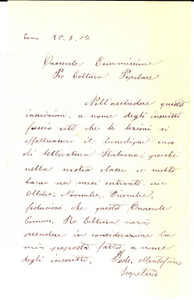 25.8.09
Onorevole Commissione
Pro Coltura Popolare
Nell'accludere questa
inscrizioni, a nome degli inscritti
faccio voti che le lezioni si
effettuassero il
di letteratura Italiana, perchè
nella nostra classe e molto
nei mesi entranti, cioè
Ottobre, Novembre, Dicembre,
fiducioso che questa Onorevole
Comm. Pro Coltura vorrà
prendere in considerazione la
mia proposta fatta, a nome
degli inscritti.
Segretario